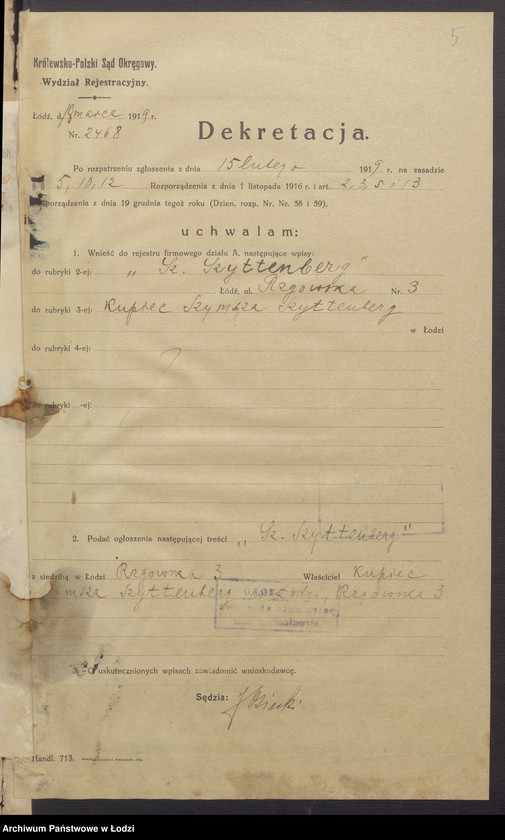 5
Królewsko-Polski Sąd Okręgowy.
Wydział Rejestracyjny.
Łódź, d. 18 marca 1919 r.
Nr. 2468
Dekretacja.
Po rozpatrzeniu zgłoszenia z dnia 15 lutego 1919 r. na zasadzie
5, 10, 12 Rozporządzenia z dnia 1 listopada 1916 r. i art. 2, 3, 5 i 13
porządzenia z dnia 19 grudnia tegoż roku (Dzien. rozp. Nr. Nr. 58 i 59),
uchwalam:
1. Wnieść do rejestru firmowego działu A, następujące wpisy:
do rubryki 2-ej: „Sz. Szyttenberg"
Łódź, ul. Rzgowska Nr. 3
do rubryki 3-ej: Kupiec Szymsza Szyttenberg
w Łodzi
do rubryki 4-ej:
do rubryki -ej:
2. Podać ogłoszenia następującej treści „Sz. Szyttenberg"
z siedzibą w Łodzi Rzgowska 3 Właściciel Kupiec
Szyttenberg Rzgowska 3
3. O uskutecznionych wpisach zawiadomić wnioskodawcę.
Sędzia:
Handl. 713.
Archiwum Państwowe w Łodzi